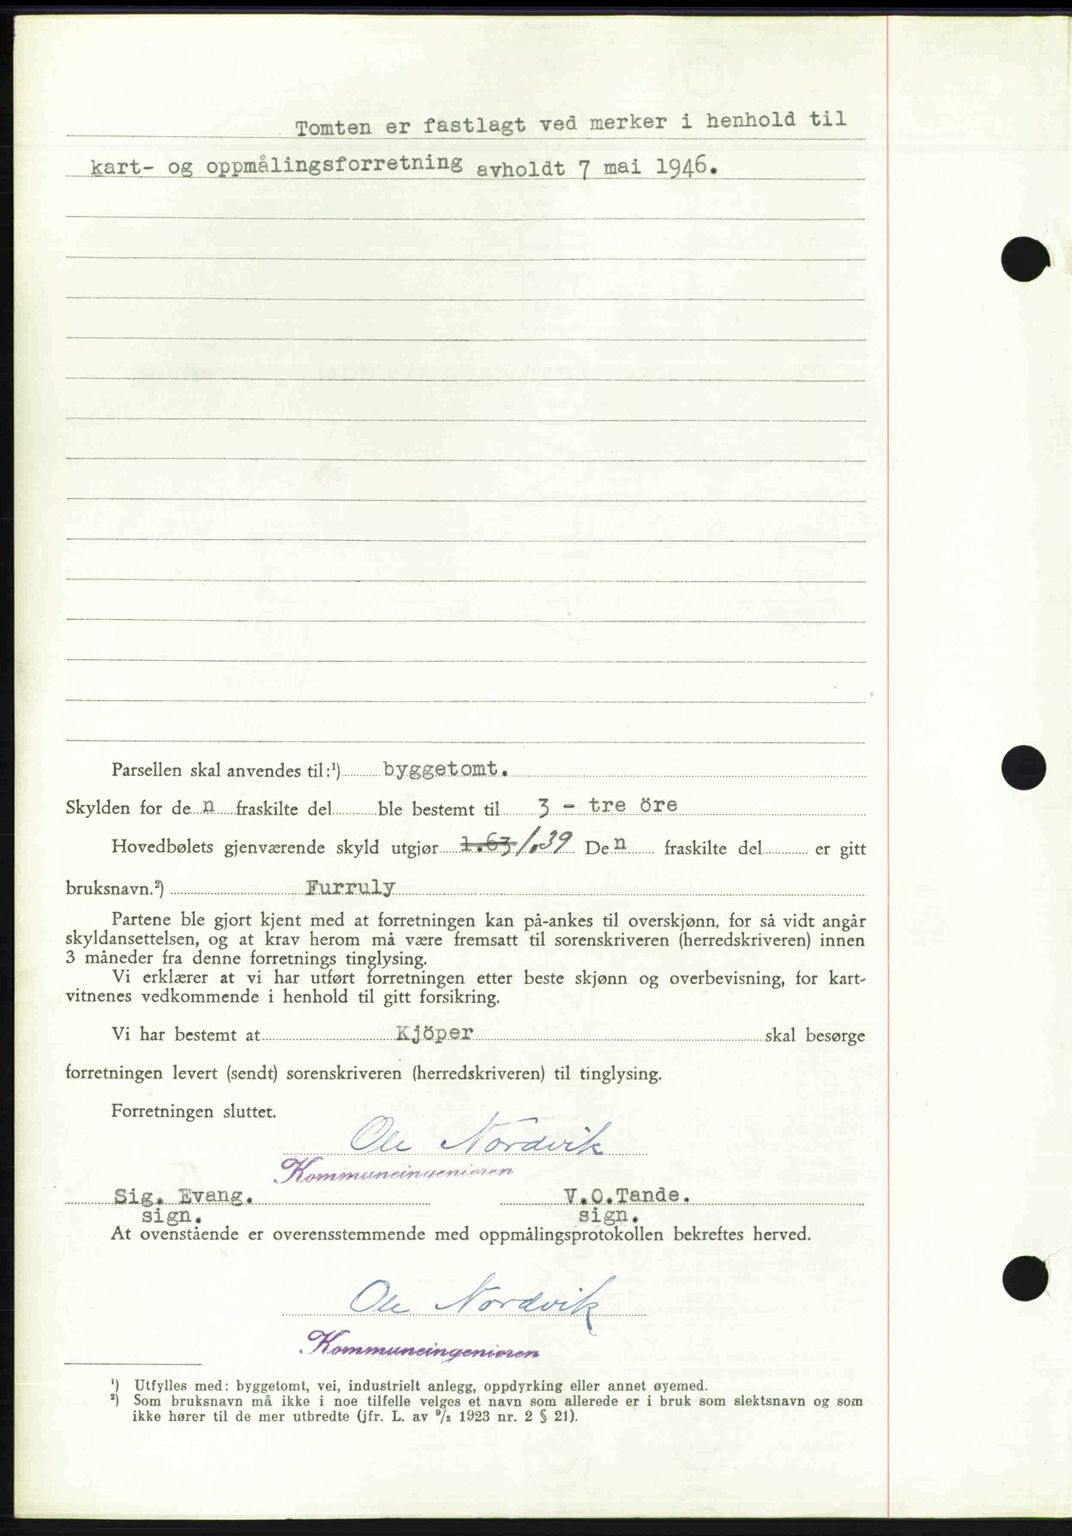 Tomten er fastlagt ved merker i henhold til
kart- og oppmålingsforretning avholdt 7 mai 1946.
Parsellen skal anvendes til:¹) byggetomt.
Skylden for de n fraskilte del ble bestemt til 3 - tre öre
Hovedbølets gjenværende skyld utgjør 1.63 1.39 De n fraskilte del er gitt
bruksnavn.²) Furruly
Partene ble gjort kjent med at forretningen kan på-ankes til overskjønn, for så vidt angår
skyldansettelsen, og at krav herom må være fremsatt til sorenskriveren (herredskriveren) innen
3 måneder fra denne forretnings tinglysing.
Vi erklærer at vi har utført forretningen etter beste skjønn og overbevisning, for kart-
vitnenes vedkommende i henhold til gitt forsikring.
Vi har bestemt at Kjöper skal besørge
forretningen levert (sendt) sorenskriveren (herredskriveren) til tinglysing.
Forretningen sluttet.
Ole Nordvik
Kommuneingeniøren
Sig. Evang. V.O.Tande.
sign. sign.
At ovenstående er overensstemmende med oppmålingsprotokollen bekreftes herved.
Ole Nordvik
Kommuneingeniøren
¹) Utfylles med: byggetomt, vei, industrielt anlegg, oppdyrking eller annet øyemed.
²) Som bruksnavn må ikke i noe tilfelle velges et navn som allerede er i bruk som slektsnavn og som
ikke hører til de mer utbredte (jfr. L. av ⁹/₂ 1923 nr. 2 § 21).